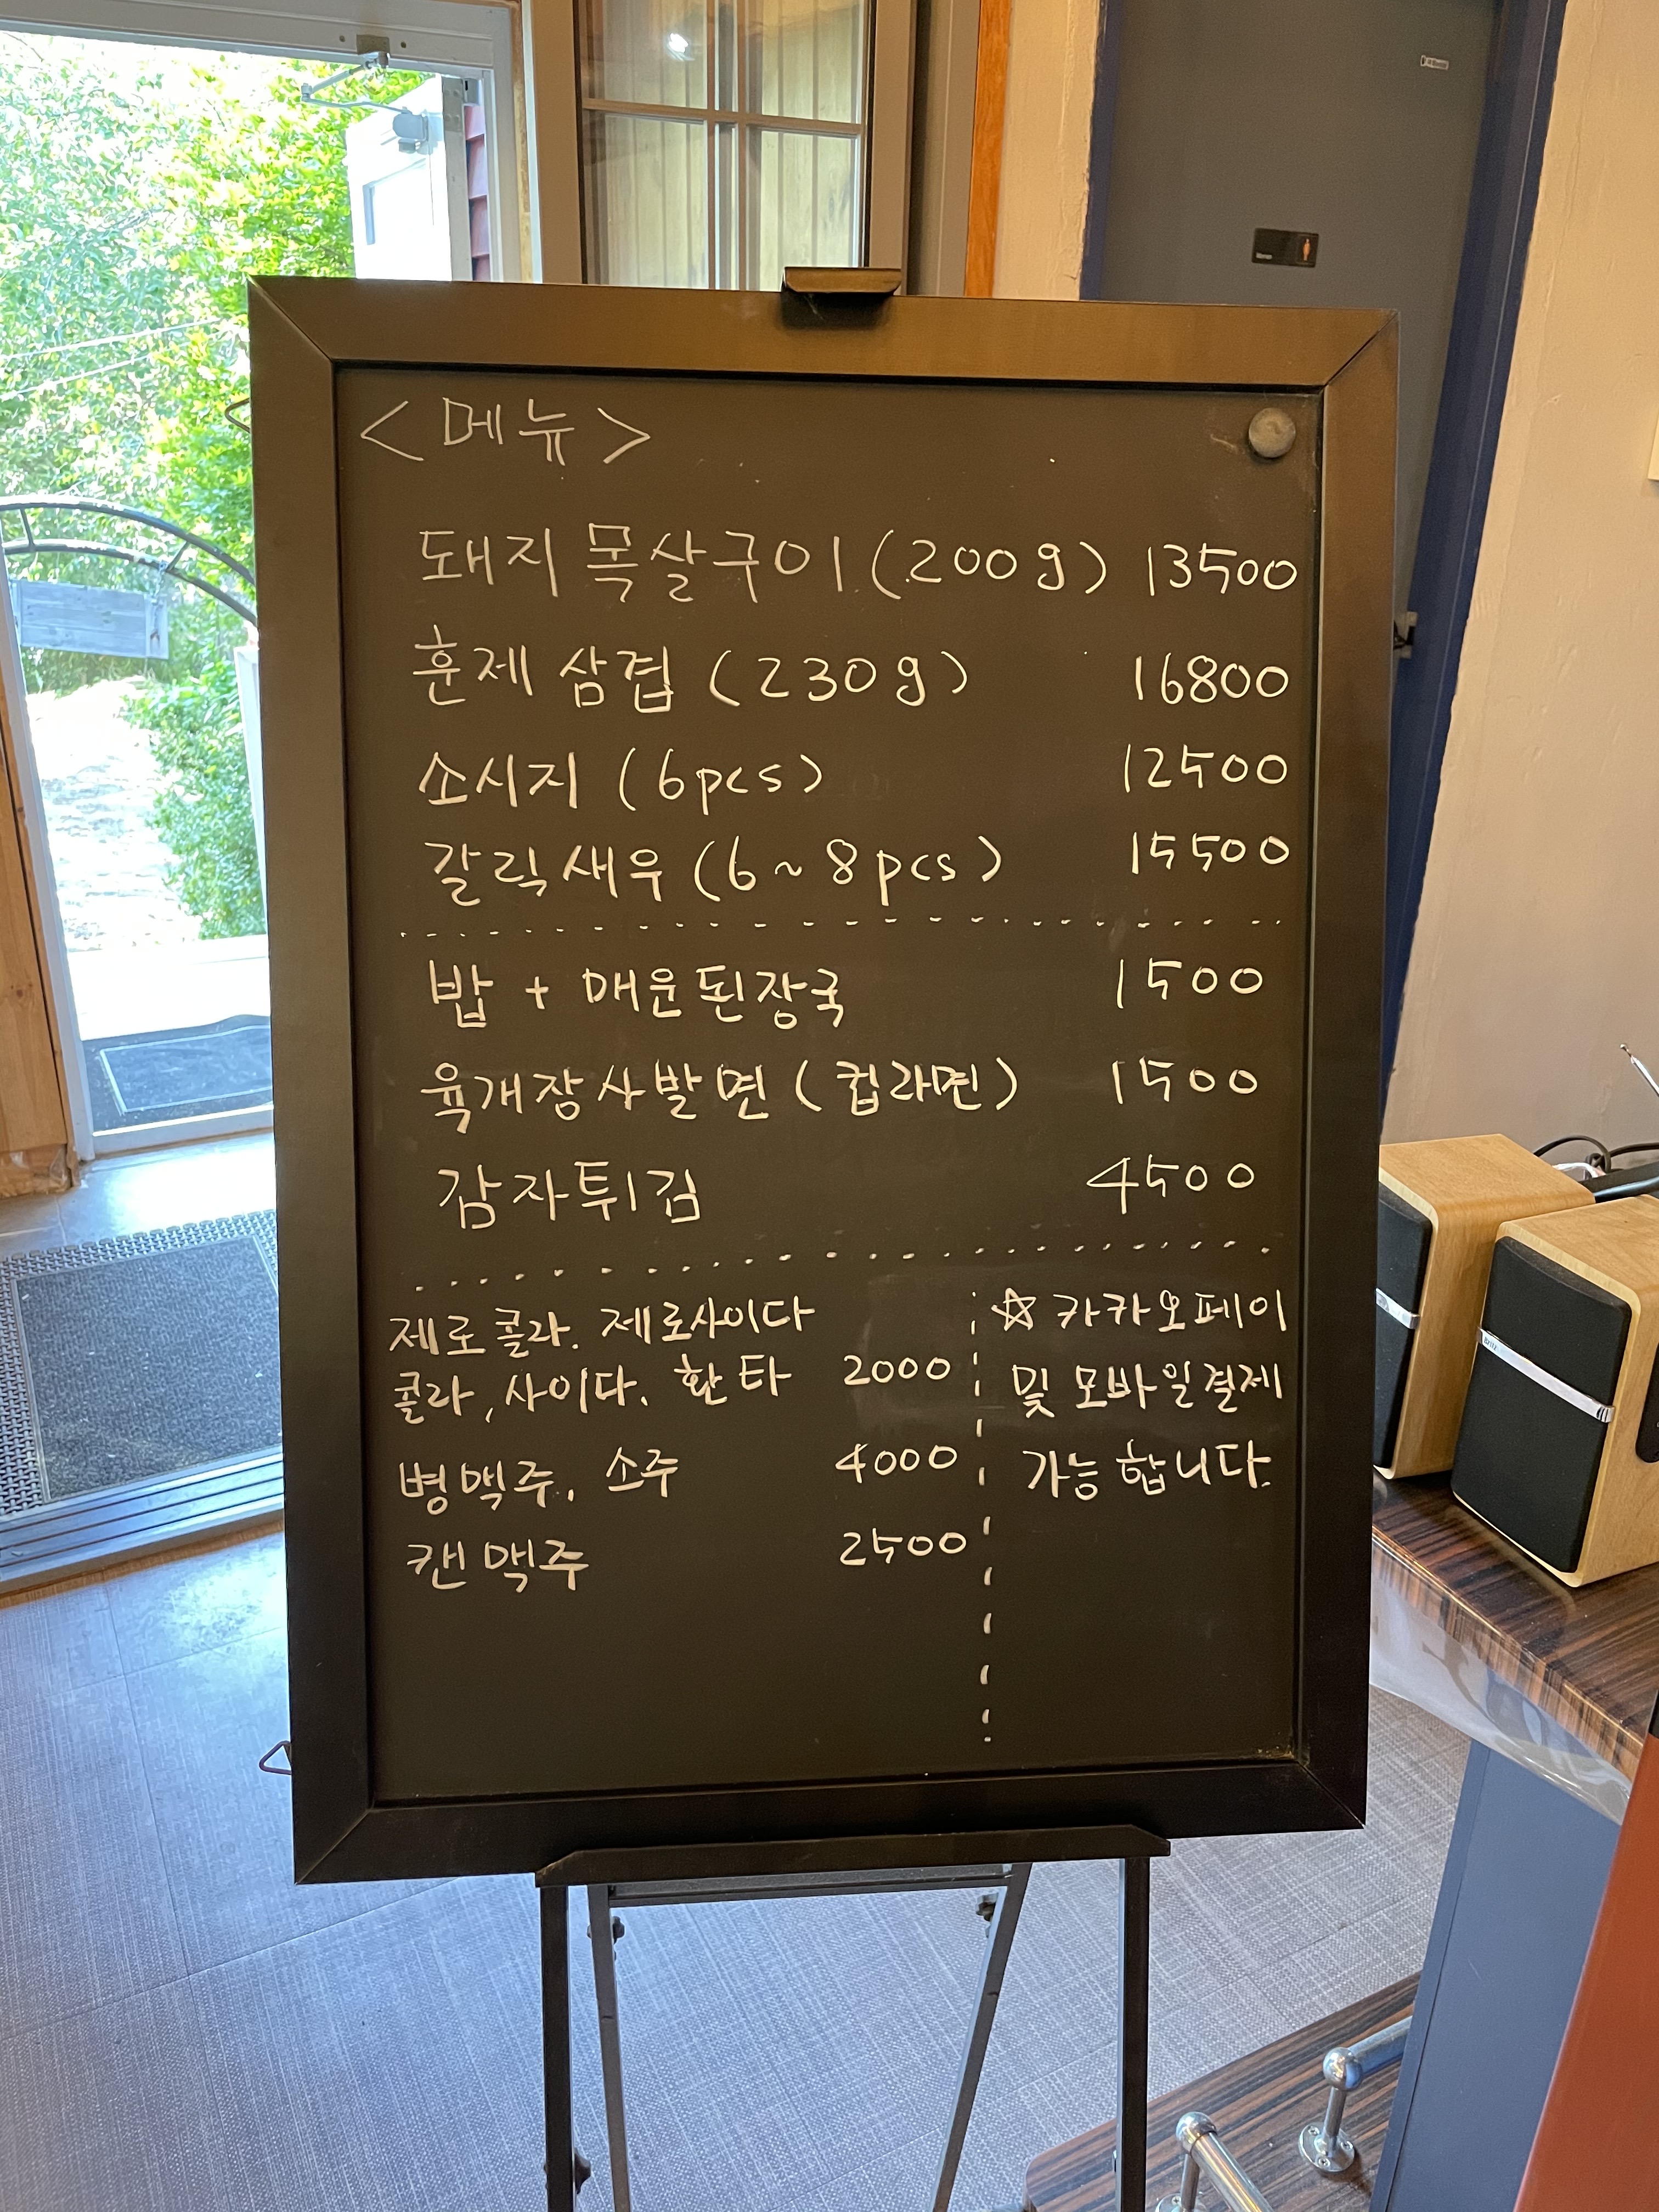 <메뉴>
돼지 목살구이 (200g) 13500
훈제 삼겹 (230g) 16800
소시지 (6pcs) 12500
갈릭새우 (6~8pcs) 15500
밥 + 매운된장국 1500
육개장사발면 (컵라면) 1500
감자튀김 4500
제로콜라. 제로사이다
콜라, 사이다. 환타 2000
병맥주. 소주 4000
캔맥주 2500
☆ 카카오페이
및 모바일결제
가능합니다.
Women
Britz